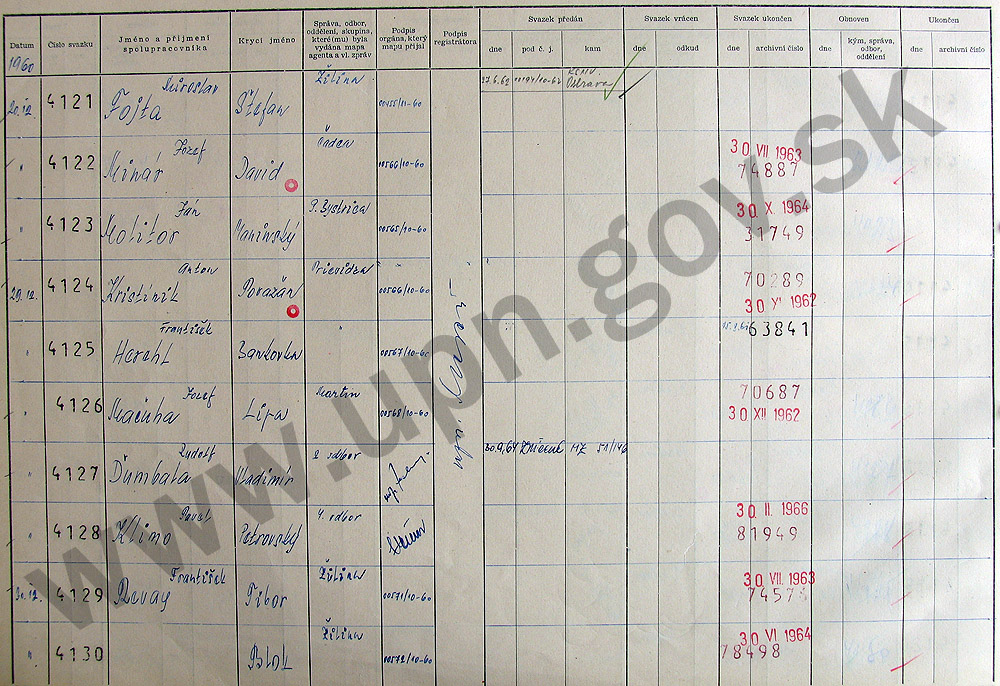 Datum
Číslo svazku
Jméno a příjmení
spolupracovníka
Krycí jméno
Správa, odbor,
oddělení, skupina,
které(mu) byla
vydána mapa
agenta a vl. zpráv
Podpis
orgána, který
mapu přijal
Podpis
registrátora
Svazek předán
dne
pod č. j.
kam
Svazek vrácen
dne
odkud
Svazek ukončen
dne
archivní číslo
Obnoven
dne
kým, správa,
odbor,
oddělení
Ukončen
dne
archivní číslo
1960
20.12. 4121 Miroslav Fojta Štefan Žilina 00455/10-60 27.6.62 Ostrava
" 4122 Jozef Minár David 00566/10-60 30 VII 1963
74887
" 4123 Ján Molitor Maninský P. Bystrica 00565/10-60 30 X. 1964
31749
29.12. 4124 Anton Kristiník Považan Prievidza 00566/10-60 70289
30 XI 1962
" 4125 František Hercht Bankovka " 00567/10-60 63841
" 4126 Jozef Maciha Lipa Martin 00568/10-60 70687
30 XII 1962
" 4127 Rudolf Ďumbala Vladimír 2 odbor 30.9.64
" 4128 Pavol Klimo Petrovský 4. odbor 30 II. 1966
81949
30.12. 4129 František Revay Tibor Žilina 00571/10-60 30 VII. 1963
" 4130 Blok Žilina 00572/10-60 30 VI 1964
78498
www.upn.gov.sk